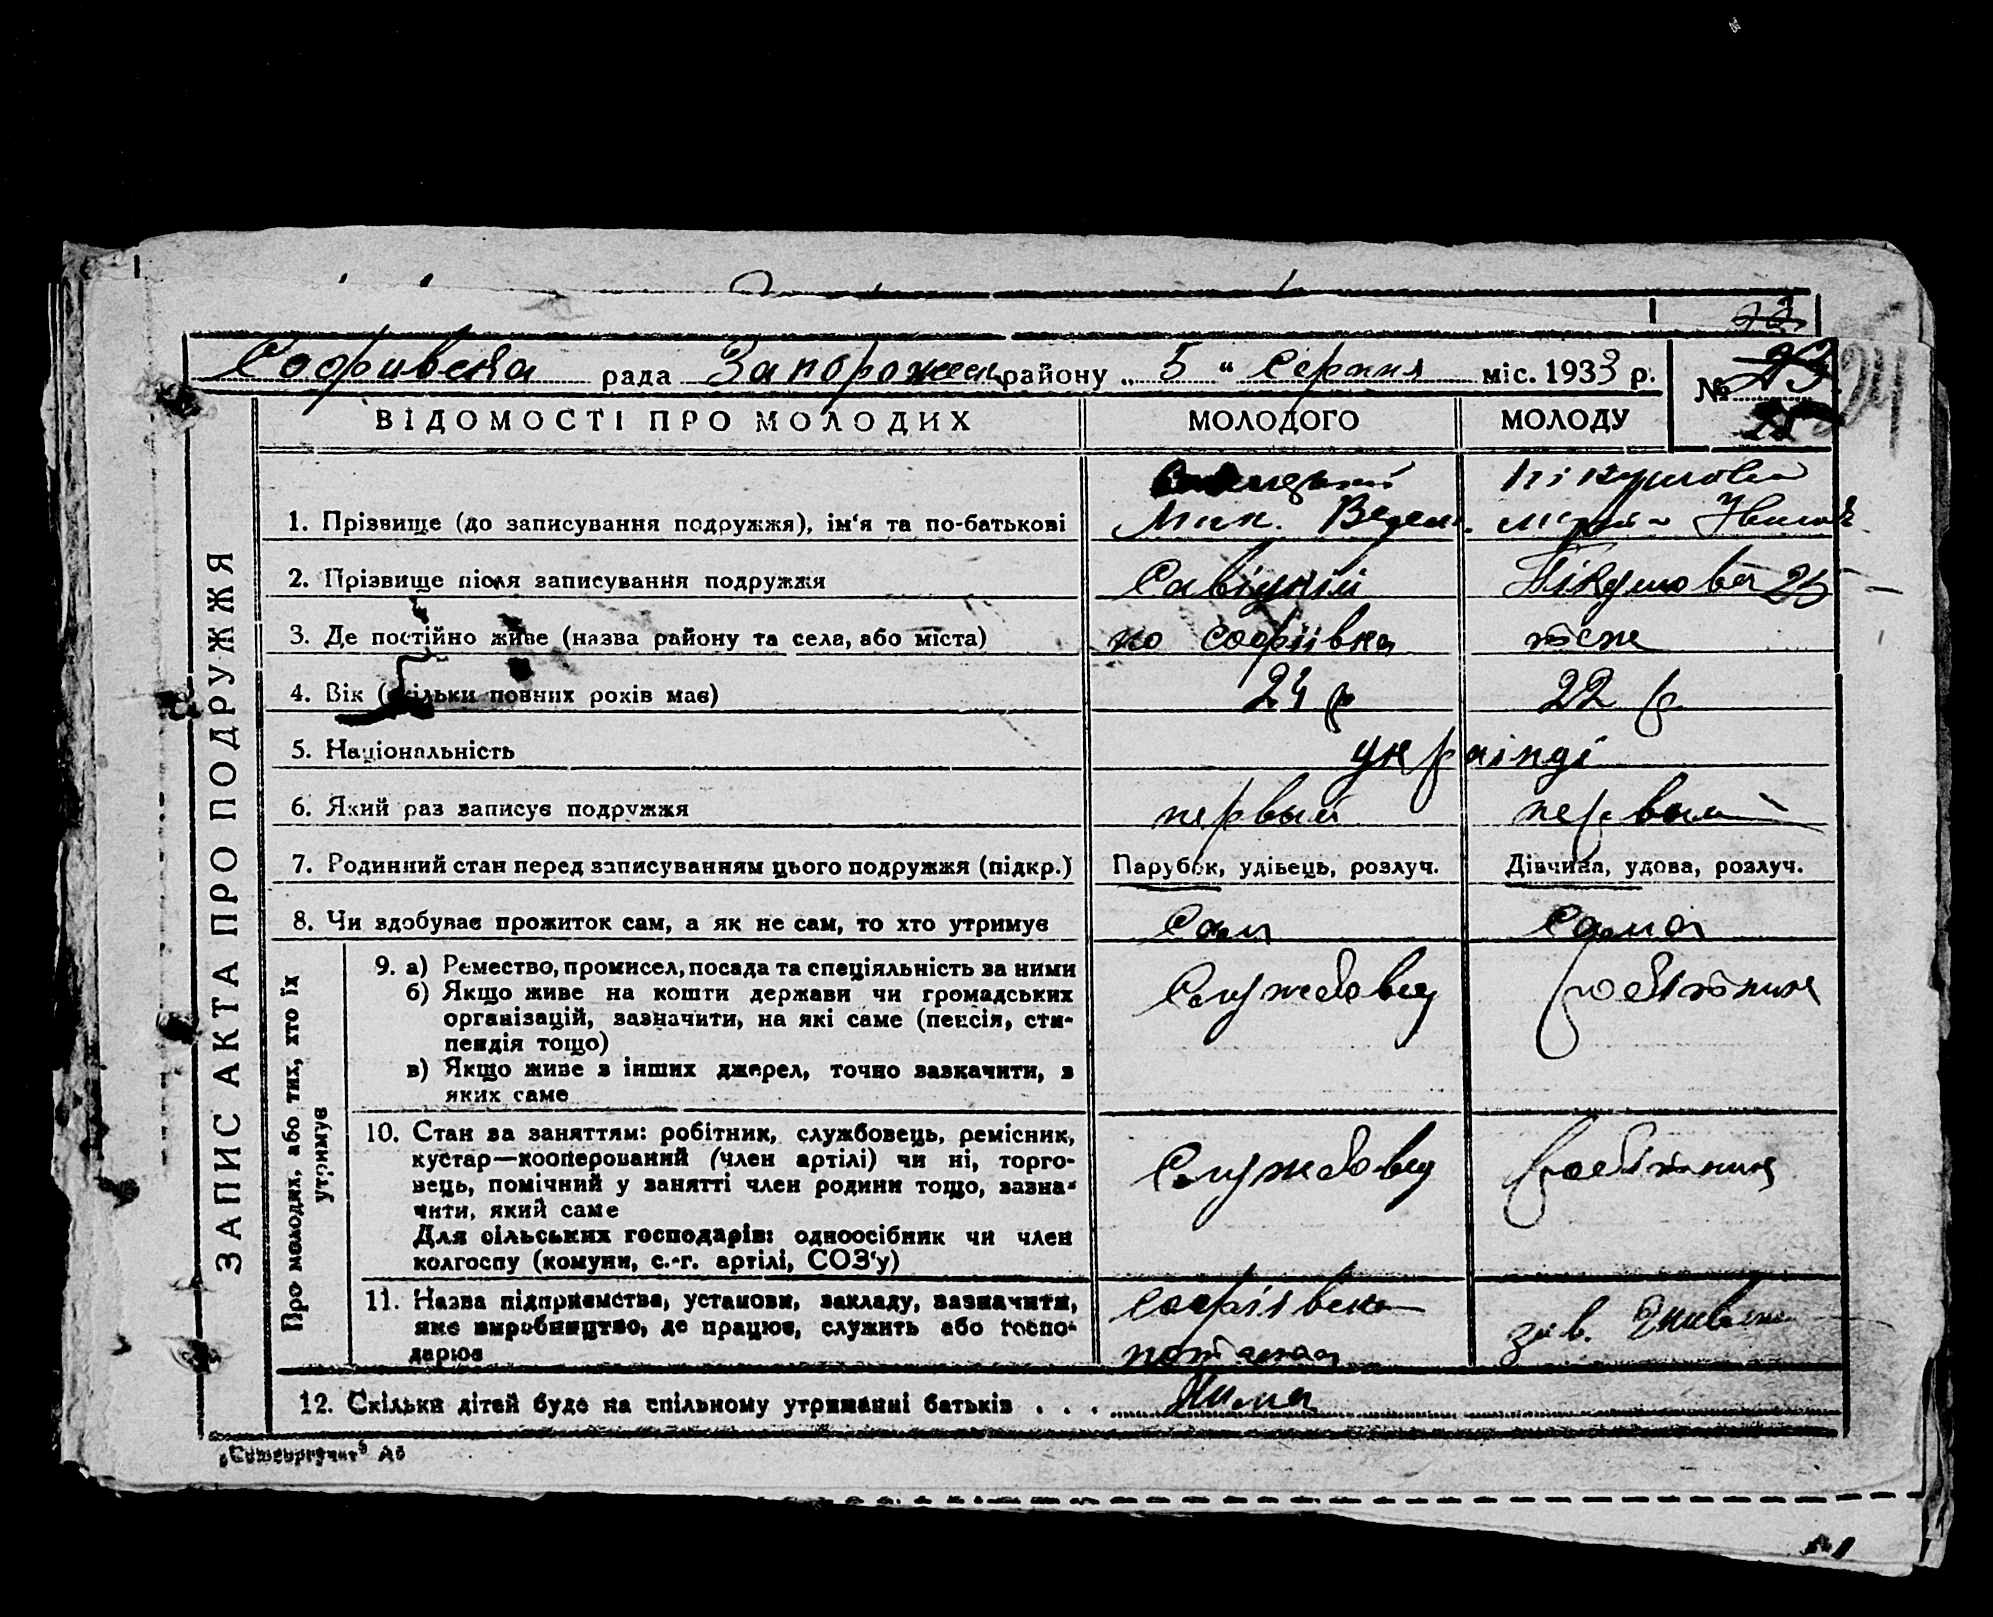 Софивска рада Запорожск району „ 5 “ Серпня міс. 1933 р.
№
ВІДОМОСТІ ПРО МОЛОДИХ МОЛОДОГО МОЛОДУ
ЗАПИС АКТА ПРО ПОДРУЖЖЯ
1. Прізвище (до записування подружжя), ім‘я та по-батькові
Мик.
2. Прізвище після записування подружжя Савіцкий Пікушова 25
3. Де постійно живе (назва району та села, або міста) Софіівка тоже
4. Вік (скільки повних років має) 24 р 22 р.
5. Національність українці
6. Який раз записує подружжя первый первый
7. Родинний стан перед записуванням цього подружжя (підкр.) Парубок, удівець, розлуч. Дівчина, удова, розлуч.
8. Чи здобуває прожиток сам, а як не сам, то хто утримує Сам Сама
Про молодих, або тих, хто їх
утримує
9. а) Ремество, промисел, посада та спеціяльність за ними Службовец робітниця
б) Якщо живе на кошти держави чи громадських
організацій, зазначити, на які саме (пенсія, сти-
пендія тощо)
в) Якщо живе з інших джерел, точно зазначити, з
яких саме
10. Стан за заняттям: робітник, службовець, ремісник,
кустар—кооперований (член артілі) чи ні, торго-
вець, помічний у занятті член родини тощо, зазна-
чити, який саме Службовец робітниця
Для сільських господарів: одноосібник чи член
колгоспу (комуни, с.-г. артілі, СОЗ‘у)
11. Назва підприємства, установи, закладу, зазначити,
яке виробництво, де працює, служить або госпо-
дарює
Софіївска зав.
12. Скільки дітей буде на спільному утриманні батьків . . . Нима